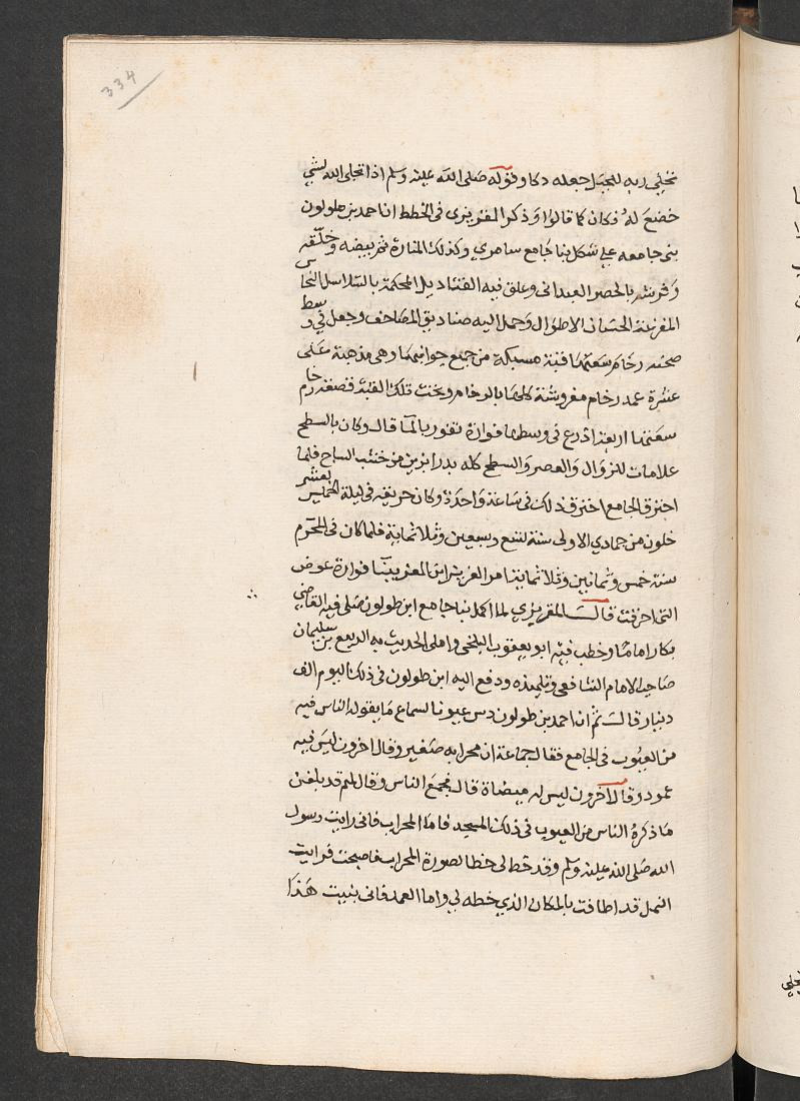 334
تجلى ربه للجبل جعله دكا وقوله صلى الله عليه وسلم اذا تجلى الله لشي
خضع له فكان كما قالوا وذكر المقريزى فى الخطط ان احمد بن طولون
بنى جامعه على شكل بنا جامع سامري وكذلك المنارة ثم بيضه وخلقه
وفرشه بالحصر العبدانى وعلق فيه القناديل المحكمة بالسلاسل النحاس
المفرغة الحسان الاطوال وحمل اليه صناديق المصاحف وجعل في وسط
صحنه رخام سعتها قبة مسبكة من جميع جوانبها وهى مذهبة على
عشرة عمد رخام مفروشة كلها بالرخام وتحت تلك القبة قصعة رخام
سعتها اربعة اذرع فى وسطها فوارة تفور بالما قال وكان بالسطح
علامات للزوال والعصر والسطح كله بدرابزين من خشب الساج فلما
احترق الجامع احترق ذلك فى ساعة واحدة وكان حريقه فى ليلة الخميس لعشر
خلون من جمادي الاولى سنة تسع وسبعين وثلاثماية فلما كان فى المحرم
سنة خمس وثمانين وثلاثماية امر العزيز ابن المعز ببنا فوارة عوض
التى احرقت قالـــ المقريزي لما اكمل بنا جامع ابن طولون صلى فيه القاضي
بكار اماما وخطب فيه ابو يعقوب البلخى واملى الحديث به الربيع بن سليمان
صاحب الامام الشافعى وتلميذه ودفع اليه ابن طولون فى ذلك اليوم الف
دينار قالـــ ثم ان احمد بن طولون دس عيونا لسماع ما يقوله الناس فيه
من العيوب فى الجامع فقال جماعة ان محرابه صغير وقال اخرون ليس فيه
عمود وقال اخرون ليس له ميضاة قال فجمع الناس وقال لهم قد بلغنى
ما ذكره الناس من العيوب فى ذلك المسجد فاما المحراب فانى رايت رسول
الله صلى الله عليه وسلم وقد خط لى خطا بصورة المحراب فاصبحت فرايت
النمل قد اطافت بالمكان الذي خطه لي واما العمد فانى بنيت هذا